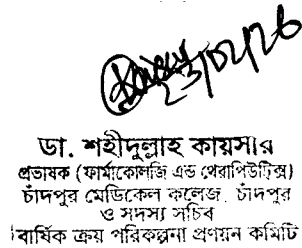 23/02/26
ডা. শহীদুল্লাহ কায়সার
প্রভাষক (ফার্মাকোলজি এন্ড থেরাপিউটিক্স)
চাঁদপুর মেডিকেল কলেজ, চাঁদপুর
ও সদস্য সচিব
বার্ষিক ক্রয় পরিকল্পনা প্রণয়ন কমিটি